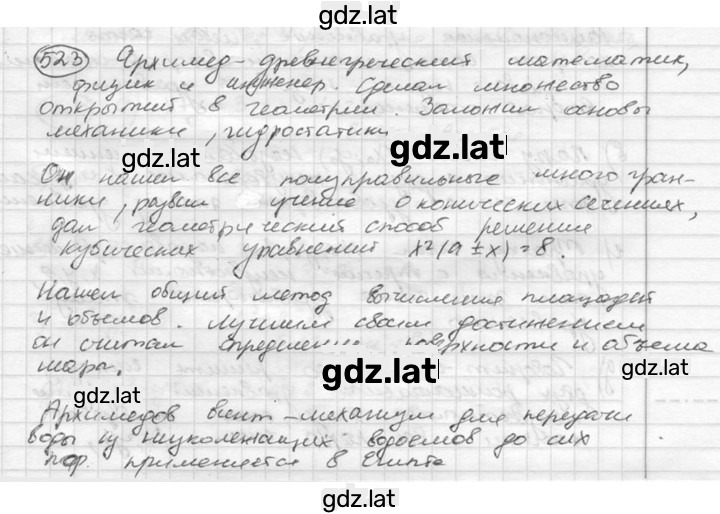 gdz.lat
523 Архимед - древнегреческий математик,
физик и инженер. Сделал множество
открытий в геометрии. Заложил основы
механики, гидростатики
gdz.lat
Он нашел все полуправильные многогран-
ники, развил учение о конических сечениях,
дал геометрический способ решения
кубических уравнений x²(a ± x) = B.
Нашел общий метод вычисления площадей
и объемов. Лучшим своим достижением
он считал определение поверхности и объема
шара.
gdz.lat
gdz.lat
Архимедов винт - механизм для передачи
воды из низколежащих водоемов до сих
пор применяется в Египте
gdz.lat